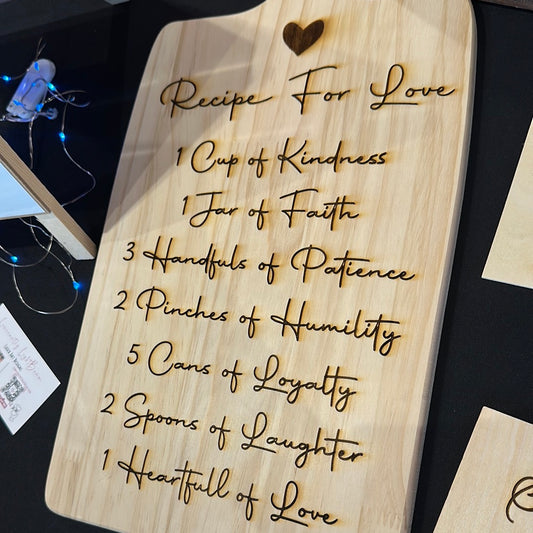 Recipe For Love
1 Cup of Kindness
1 Jar of Faith
3 Handfuls of Patience
2 Pinches of Humility
5 Cans of Loyalty
2 Spoons of Laughter
1 Heartfull of Love